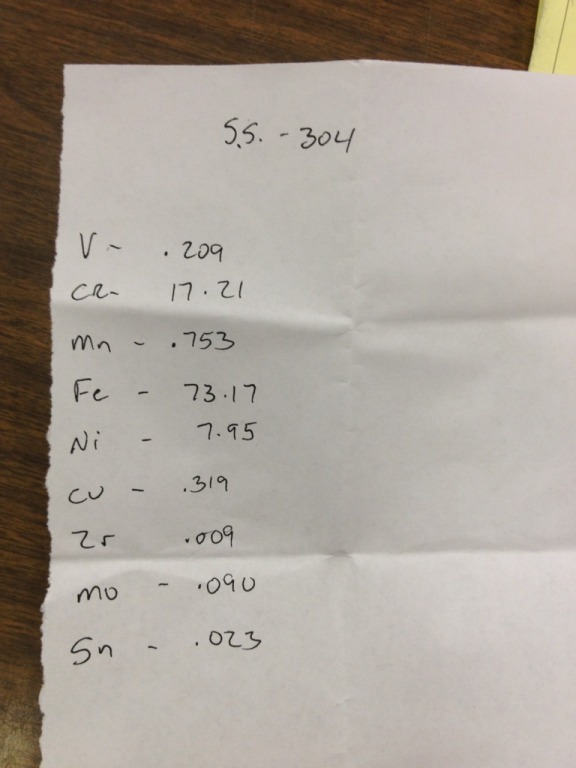 S.S. - 304
V - .209
CR - 17.21
Mn - .753
Fe - 73.17
Ni - 7.95
CU - .319
Zr .009
MO - .090
Sn - .023